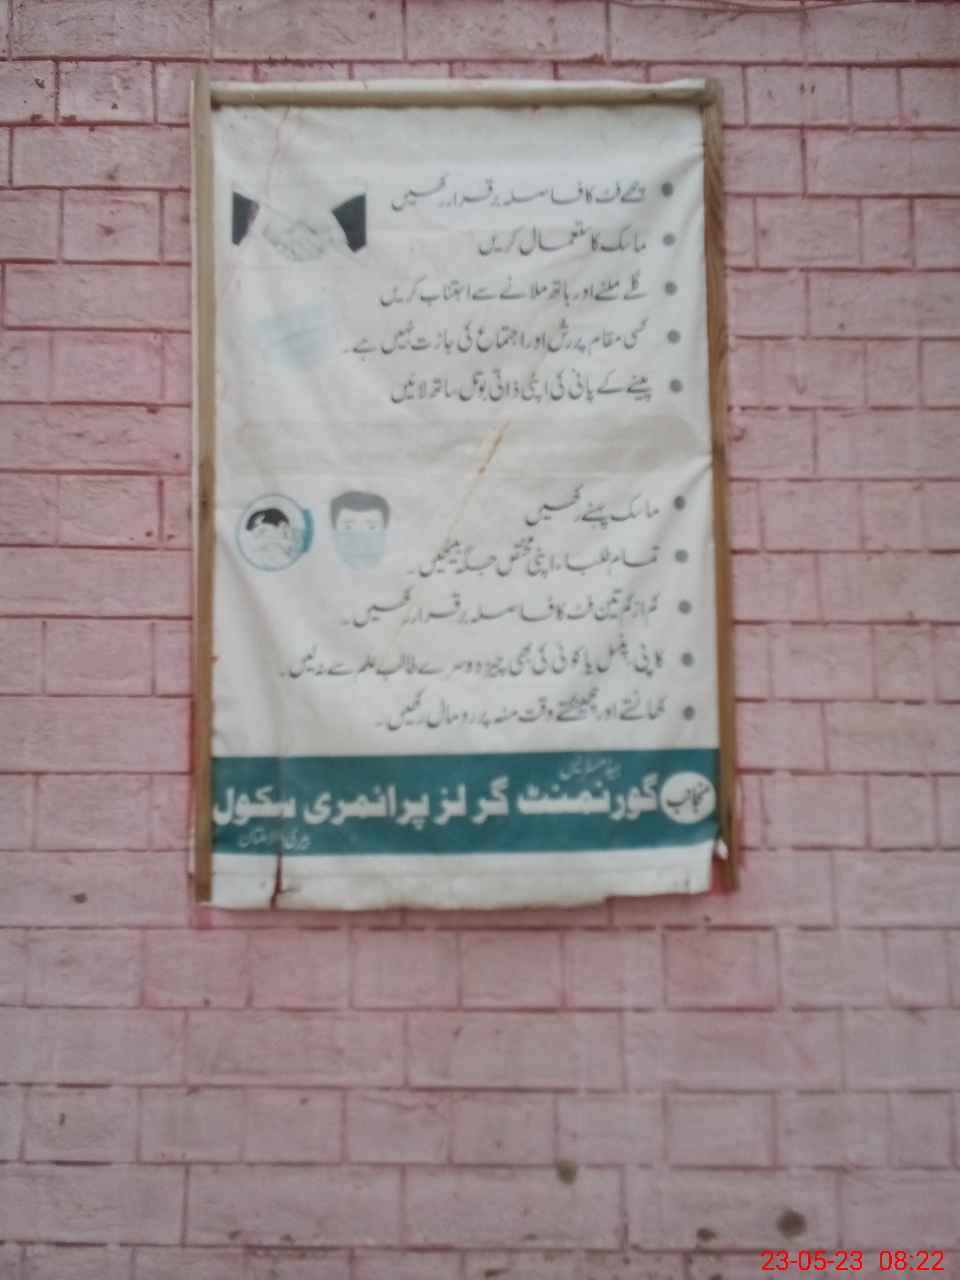 چھ فٹ کا فاصلہ برقرار رکھیں
ماسک کا ستعمال کریں
گلے ملنے اور ہاتھ ملانے سے اجتناب کریں
کسی مقام پر رش اور اجتماع کی جازت نہیں ہے۔
پینے کے پانی کی اپنی ذاتی بوتل ساتھ لائیں
ماسک پہنے رکھیں
تمام طلباء اپنی مختص جگہ بیٹھیں۔
کم از کم تین فٹ کا فاصلہ برقرار رکھیں۔
کاپی، پنسل یا کوئی بھی چیز دوسرے طالب علم سے نہ لیں۔
کھانستے اور چھینکتے وقت منہ پر رومال رکھیں۔
منجانب
گورنمنٹ گرلز پرائمری سکول
23-05-23 08:22